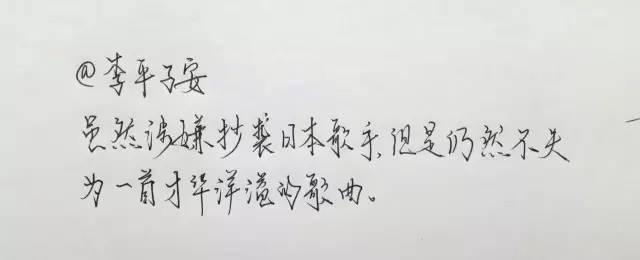 @李平子安
虽然涉嫌抄袭日本歌手,但是仍然不失
为一首才华洋溢的歌曲。